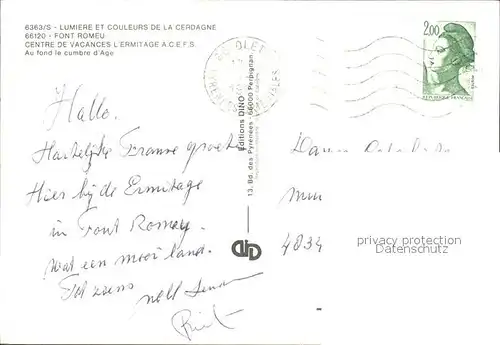 6363/S - LUMIERE ET COULEURS DE LA CERDAGNE
66120 - FONT ROMEU
CENTRE DE VACANCES L'ERMITAGE A.C.E.F.S.
Au fond le cumbre d'Age
2,00
REPUBLIQUE FRANÇAISE
OLET
Editions DINO
13, Bd. des Pyrénées - 66000 Perpignan
Hallo.
Hartelijke Franse groeten
Hier bij de Ermitage
in Font Romey.
wat een mooi land.
Tot ziens
4834
privacy protection
Datenschutz